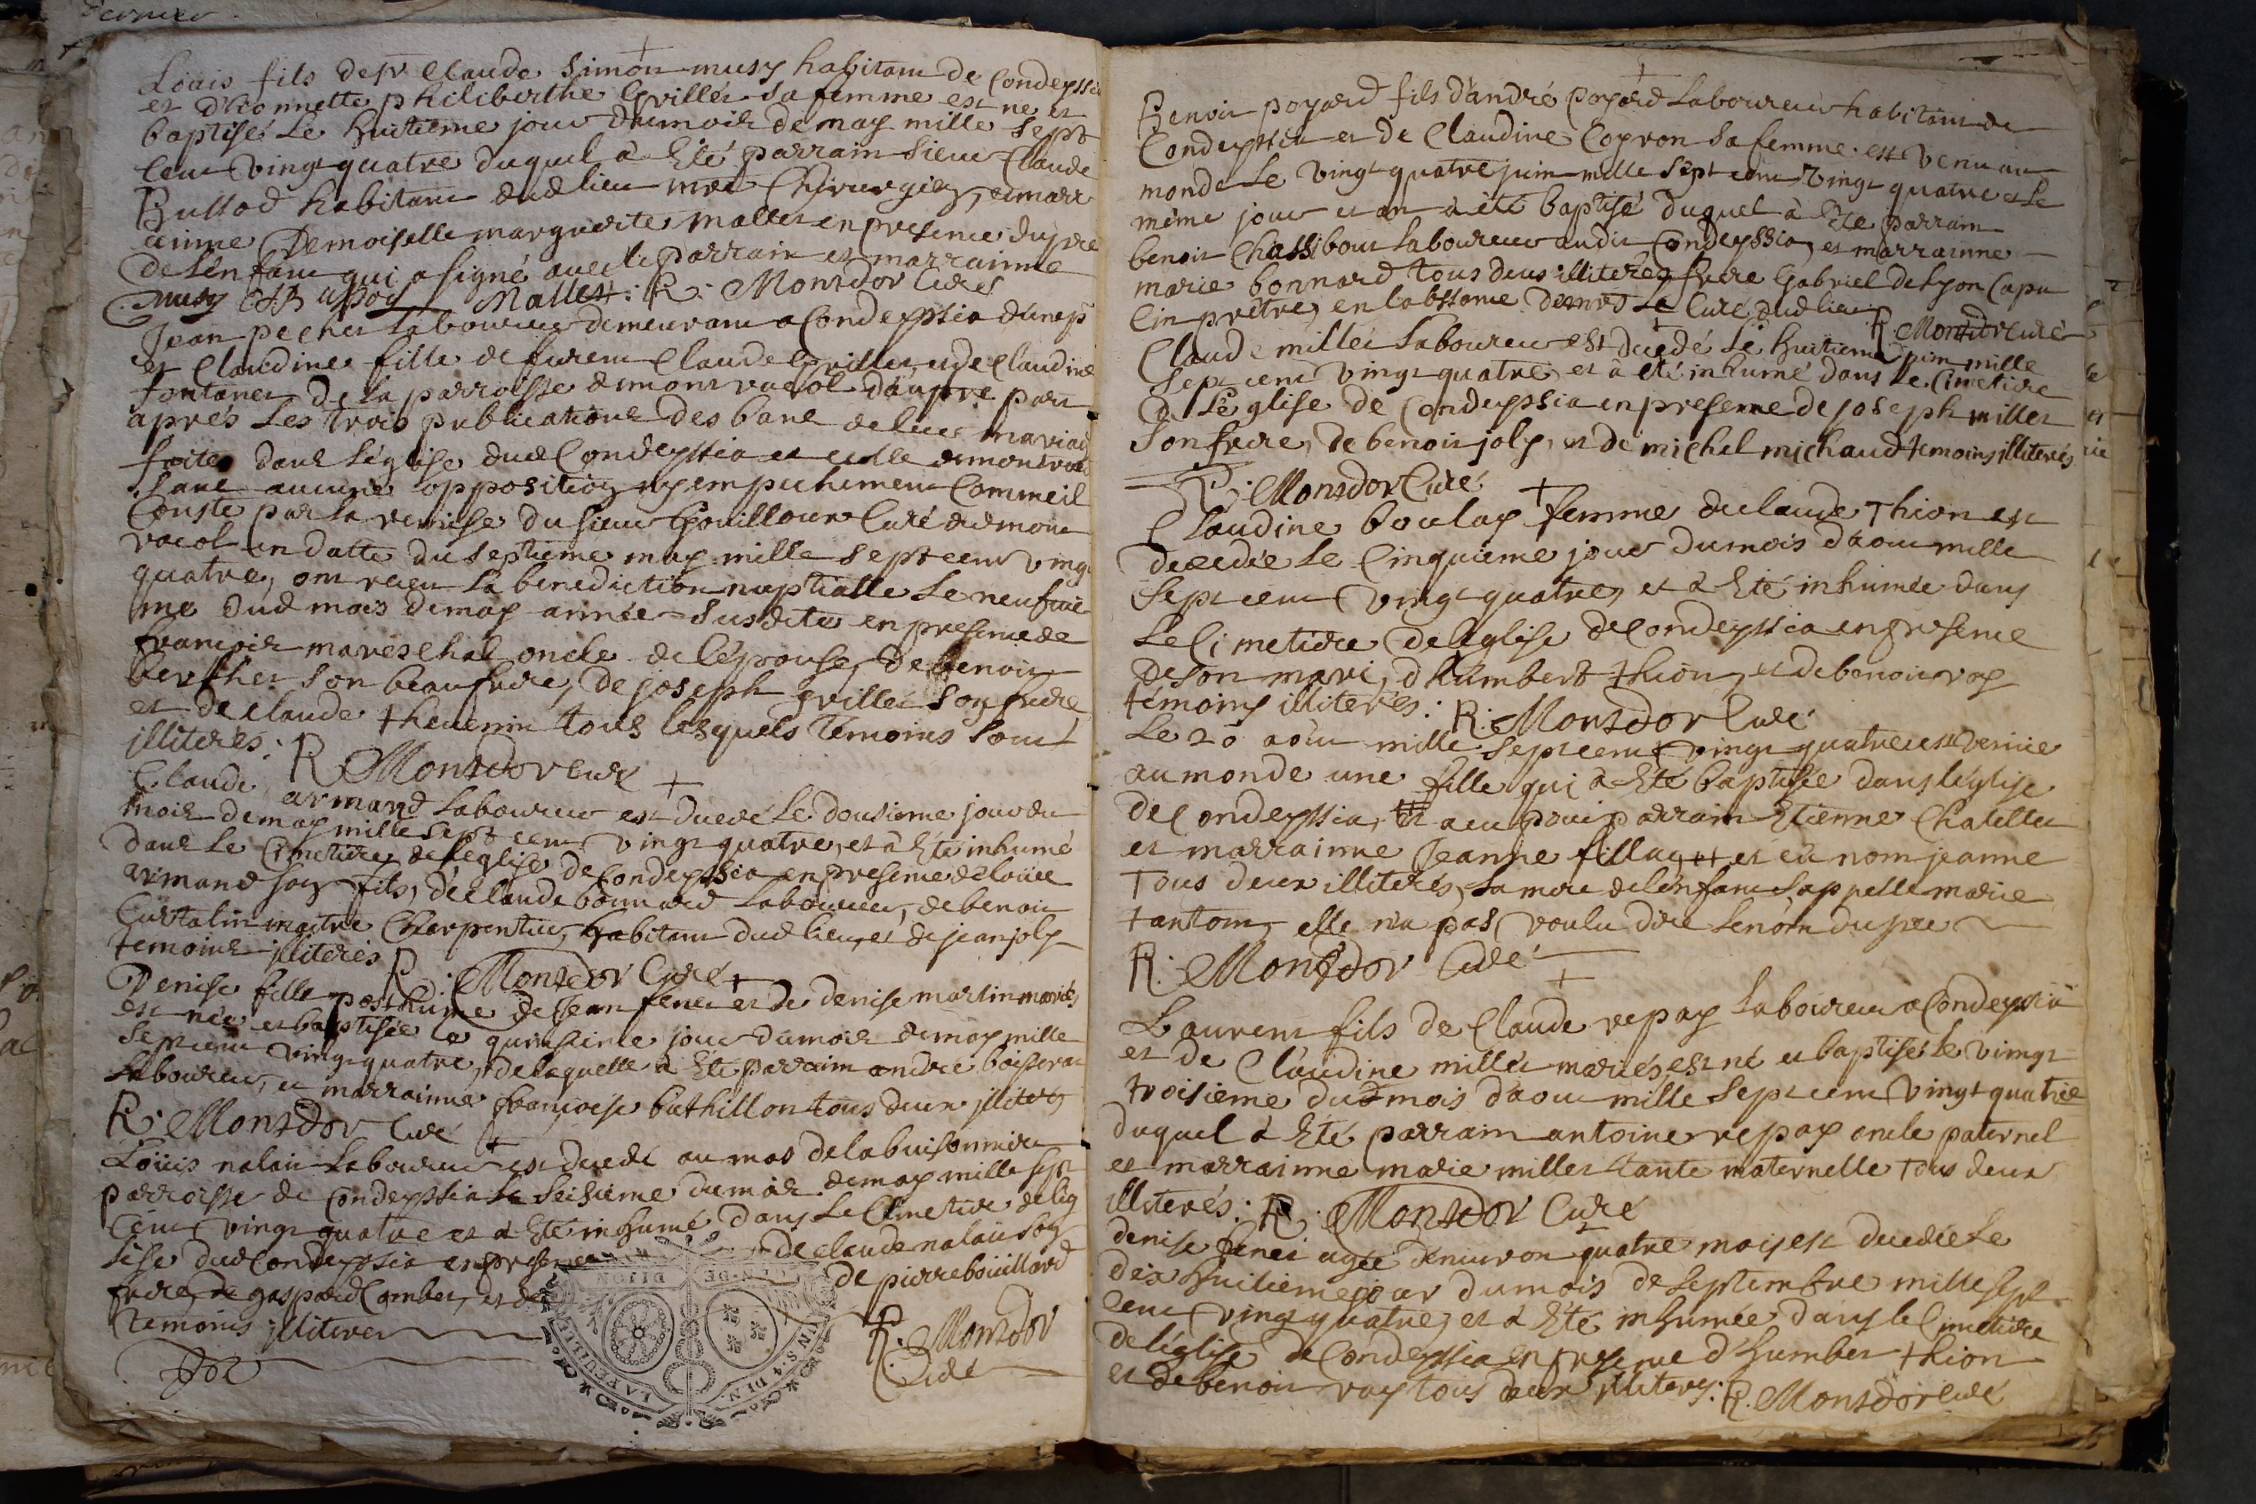 Loüis fils de Sr Claude Simon musy habitant de Condeyssia
et d'honnette philiberthe Grillet sa femme est né et
baptisé Le huitieme jour dumois de may mille sept
cent vingt quatre duquel à Eté parrain sieur Claude
habitant dud lieu mre Chirurgien, et marr
ainne Demoiselle marguerite mallet en presence du pre
de L'enfant qui a signé avec le parrain et marrainne
musy mallet: R: Monsdor Curé
Jean pecher laboureur demeurant a Condeyssia d'une p
et Claudine fille de furent Claude Grillet et de Claudine
fontanet de la parroisse de montracol d'autre part
aprés Les trois publications des bans de leur mariage
faites dans L'église dud Condeyssia et celle de montracol
sans aucune opposition ny empechement Comme il
Conste par la remise du sieur Gouilloux Curé de mont
racol en datte du septieme may mille sept cent vingt
quatre, ont receu la benediction nuptialle Le neufvié
me dud mois de may année susdite en presence de
françois mareschal oncle de L'épouse, de benoit
berthet son beaufrere, de joseph grillet son frere
et de claude thevenin tous lesquels Témoins sont
illiterés: R: Monsdor Curé
Claude armand laboureur est decedé Le dousieme jour du
mois de may mille sept cent vingt quatre, et à Eté inhumé
dans Le Cimetiere de L'eglise de Condeyssia en presence de loüis
armand son fils, de Claude bonnard Laboureur, de benoit
Curtalin maitre Charpentier, habitant dud lieu, et de jean joly
temoins illiterés R: Monsdor Curé
Denise fille posthume de Jean fenei et de denise martin mariés
est née et baptisée Le quinsieme jour dumois de may mille
sept cent vingt quatre, de laquelle à Eté parrain andré
Laboureur, et marrainne françoise bathillon tous deux illiterés
R: Monsdor Curé
Loüis nalait Laboureur est decedé au mas de la buissonniere
parroisse de Condeyssia Le Seisieme dumois de may mille sept
Cent vingt quatre et à Eté inhumé dans Le Cimetiere de l'eg
lise dud Condeyssia en presence de claude nalait son
frere, de gaspard Comber, et de pierre boüillard
Temoins illiteres R: Monsdor
Curé
LA FEUILLE
DIJON
Benoit poyard fils d'andré poyard Laboureur habitant de
Condeyssia et de Claudine Coyron sa femme est venu au
monde Le vingt quatre juin mille sept cent vingt quatre et Le
même jour et an à été baptisé duquel à Ete parrain
benoit Chassibout Laboureur audit Condeyssia, et marrainne
marie bonnard tous deus illiterés frere Gabriel de Lyon Capu
Cin prêtre, en l'abssence de mre Le Curé dud lieu R: Monsdor Curé
Claude millet laboureur est decedé Le huitieme juin mille
sept cent vingt quatre, et à été inhumé dans Le Cimetiere
de L'église de Condeyssia en presence de joseph millet
son frere, de benoit joly, et de michel michaud temoins illiterés
R: Monsdor Curé
Claudine boulay femme de claude Thion est
decedée Le Cinquieme jour dumois d'aout mille
sept cent vingt quatre, et à Eté inhumée dans
Le Cimetiere de l'eglise de Condeyssia en presence
de son mari, d'humbert thion, et de benoit ray
témoins illiterés: R: Monsdor Curé
Le 20 aout mille sept cent vingt quatre est venüe
au monde une fille qui à Eté baptisée dans l'eglise
de Condeyssia, a eu pour parrain Etienne Chatellet
et marrainne Jeanne et eû nom jeanne
Tous deux illiterés, La mere de l'enfant s'appelle marie
tantom, elle n'a pas voulu dire Le nom du pere
R: Monsdor Curé
Laurent fils de Claude repay Laboureur a Condeyssia
et de Claudine millet mariés, est né et baptisé Le vingt
troisieme dud mois d'aout mille sept cent vingt quatre
duquel à Eté parrain antoine repay oncle paternel
et marrainne marie millet tante maternelle tous deux
illiterés: R: Monsdor Curé
denise fenei agée d'environ quatre mois est decedée Le
dix huitieme jour dumois de septembre mille sept
cent vingt quatre, et à Eté inhumée dans le Cimetiere
de l'église de Condeyssia en presence d'humbert thion
et de benoit ray tous deux illiteres: R: Monsdor Curé